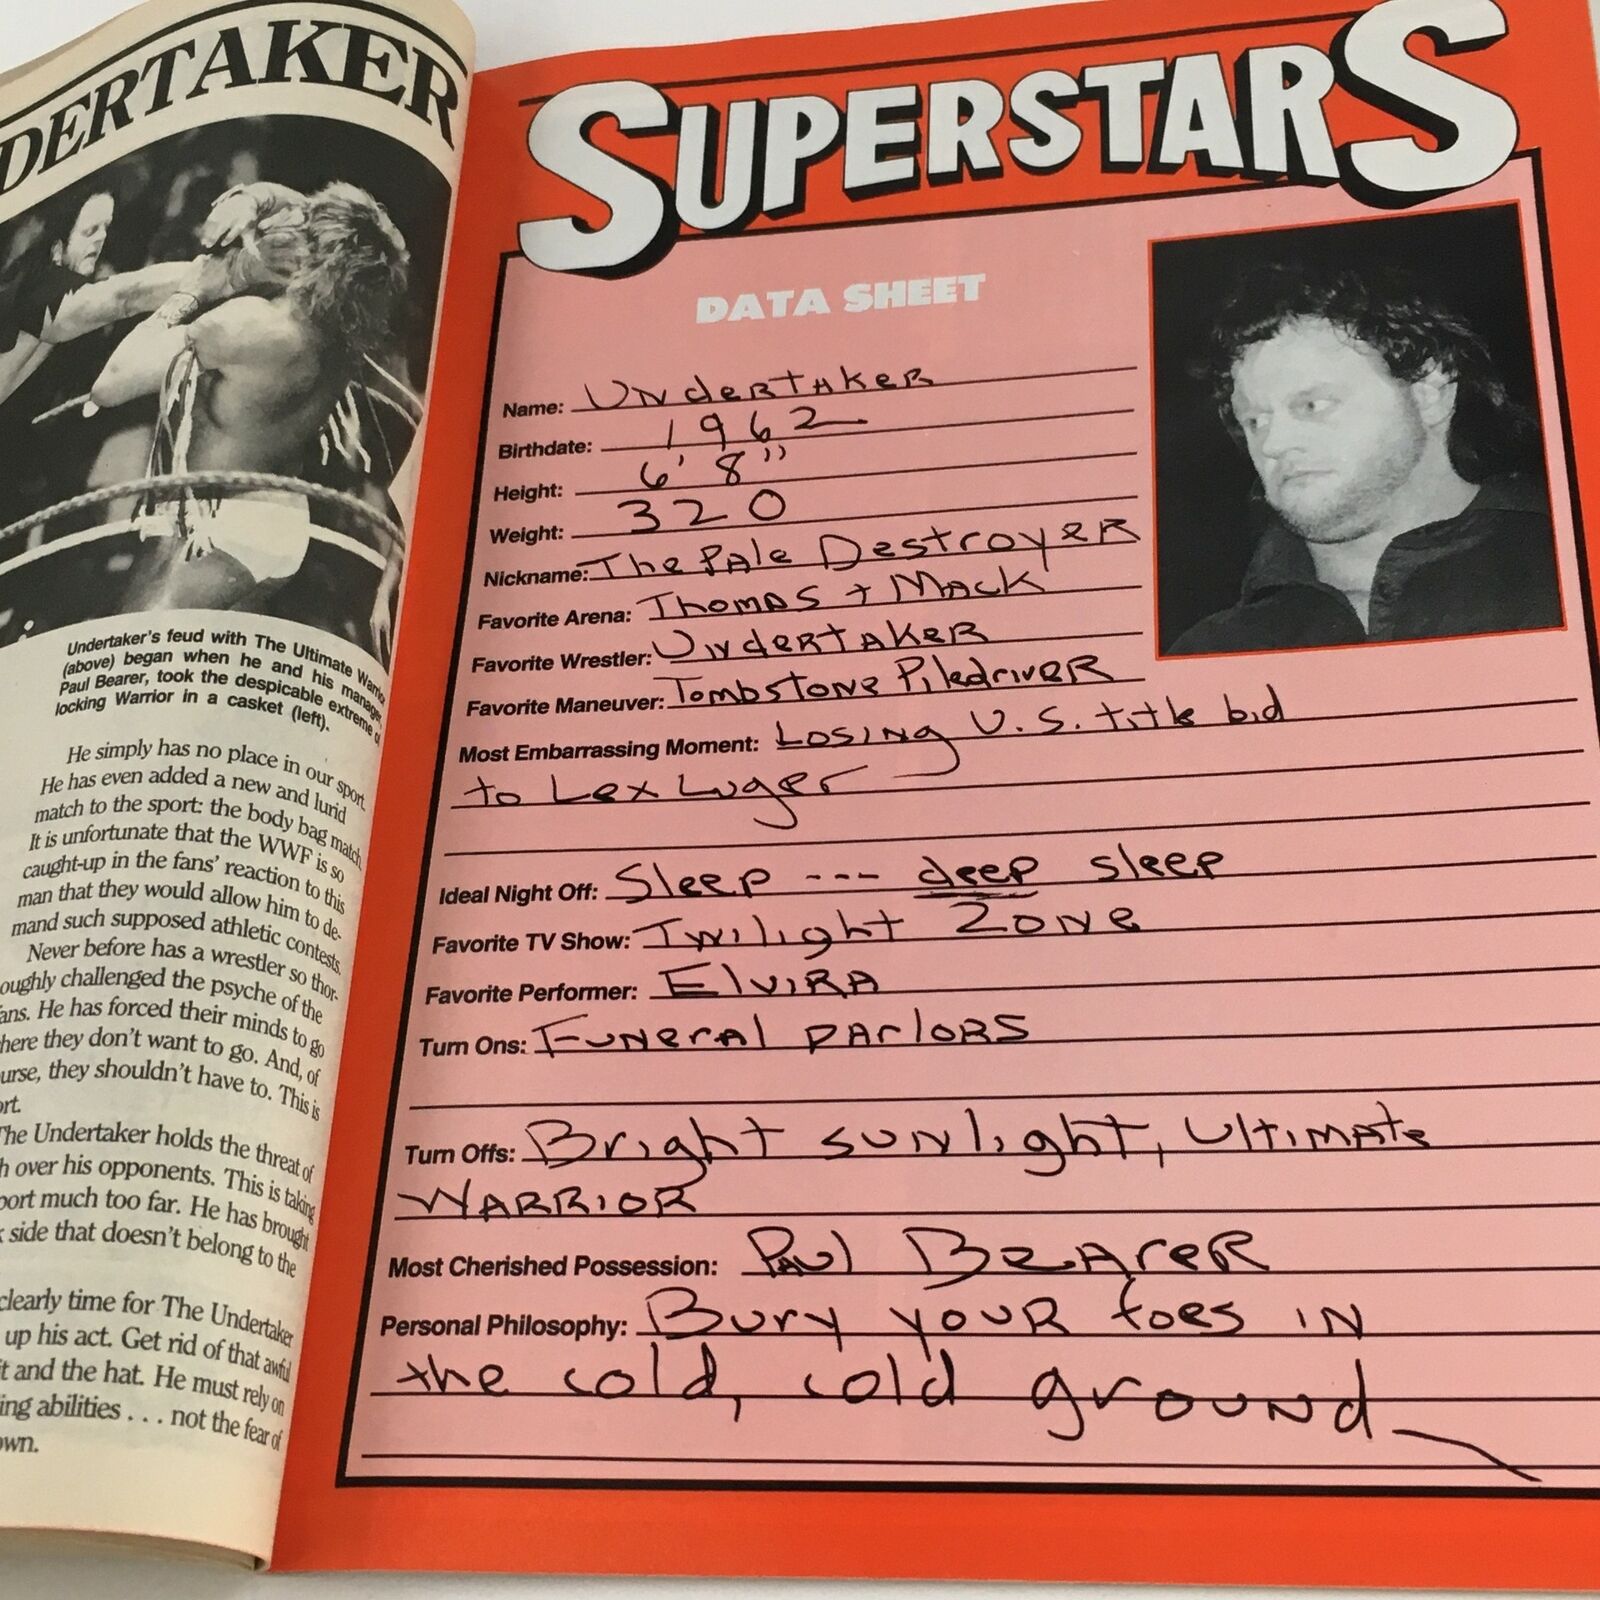 DERTAKER
Undertaker's feud with The Ultimate Warrior
(above) began when he and his manager,
Paul Bearer, took the despicable extreme of
locking Warrior in a casket (left).
He simply has no place in our sport.
He has even added a new and lurid
match to the sport: the body bag match.
It is unfortunate that the WWF is so
caught-up in the fans' reaction to this
man that they would allow him to de-
mand such supposed athletic contests.
Never before has a wrestler so thor-
oughly challenged the psyche of the
fans. He has forced their minds to go
here they don't want to go. And, of
urse, they shouldn't have to. This is
ort.
The Undertaker holds the threat of
h over his opponents. This is taking
port much too far. He has brought
side that doesn't belong to the
clearly time for The Undertaker
up his act. Get rid of that awful
it and the hat. He must rely on
ing abilities . . . not the fear of
own.
SUPERSTARS
DATA SHEET
Name: Undertaker
Birthdate: 1962
Height: 6' 8"
Weight: 320
Nickname: The Pale Destroyer
Favorite Arena: Thomas + Mack
Favorite Wrestler: Undertaker
Favorite Maneuver: Tombstone Piledriver
Most Embarrassing Moment: Losing U.S. title bid
to Lex Luger
Ideal Night Off: Sleep --- deep sleep
Favorite TV Show: Twilight Zone
Favorite Performer: Elvira
Turn Ons: Funeral parlors
Turn Offs: Bright sunlight, Ultimate
Warrior
Most Cherished Possession: Paul Bearer
Personal Philosophy: Bury your toes in
the cold, cold ground